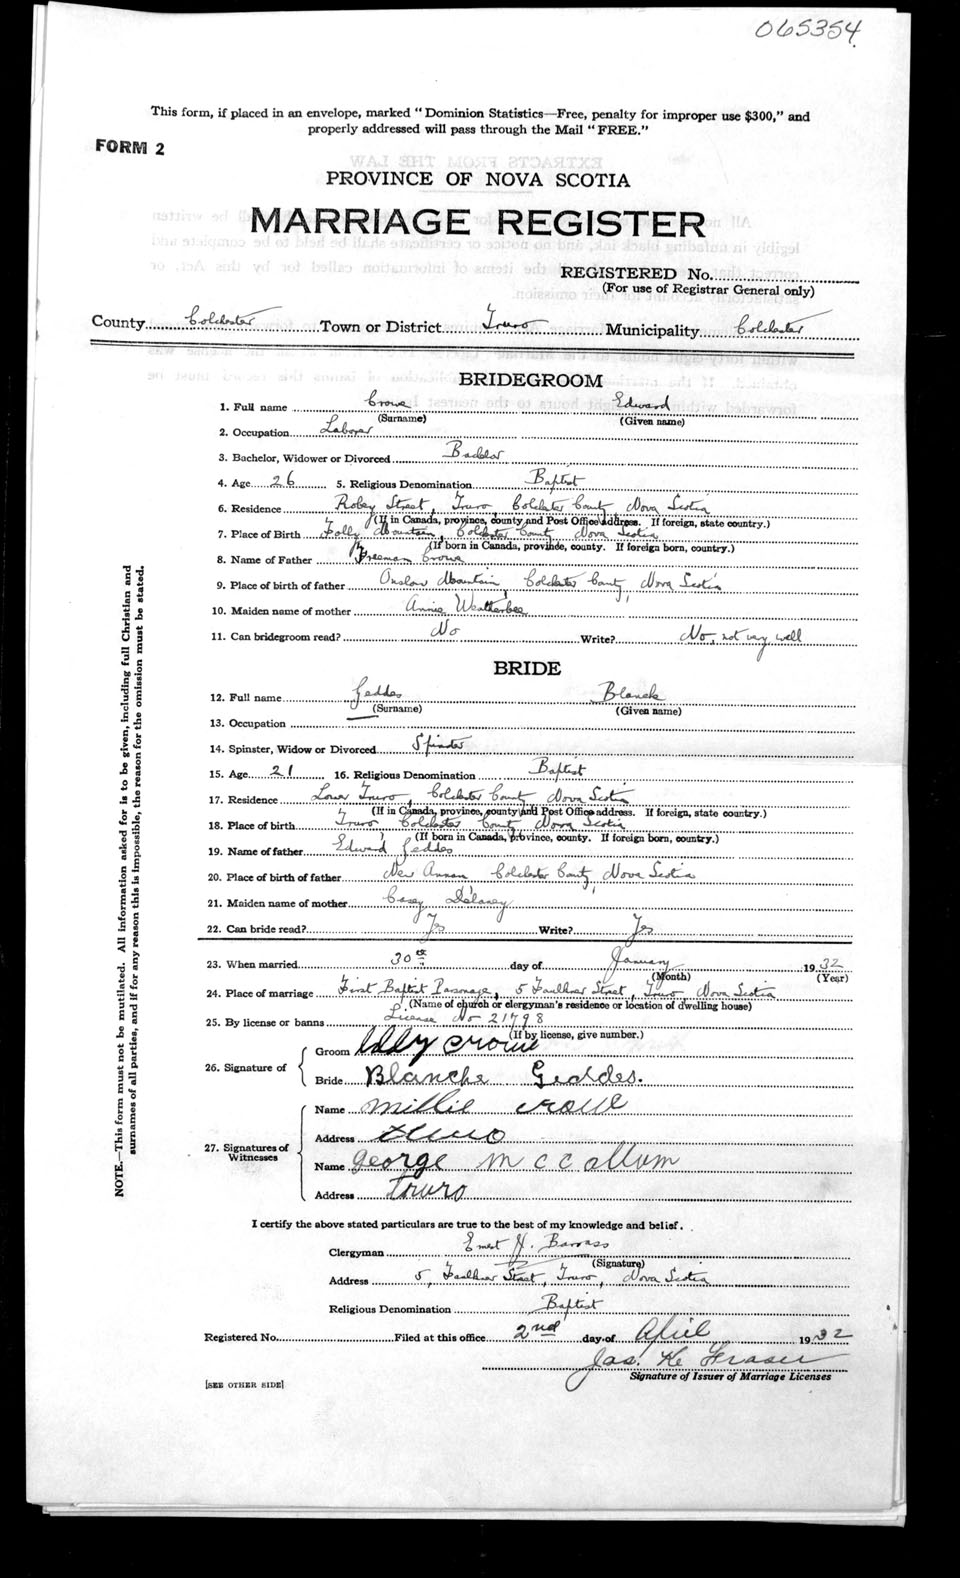 065354
This form, if placed in an envelope, marked "Dominion Statistics—Free, penalty for improper use $300," and
properly addressed will pass through the Mail "FREE."
FORM 2
PROVINCE OF NOVA SCOTIA
MARRIAGE REGISTER
REGISTERED No.
(For use of Registrar General only)
County Colchester Town or District Truro Municipality Colchester
BRIDEGROOM
1. Full name Crowe Edward
(Surname) (Given name)
2. Occupation Laborer
3. Bachelor, Widower or Divorced Bachelor
4. Age 26 5. Religious Denomination Baptist
6. Residence Robey Street, Truro, Colchester County Nova Scotia
(If in Canada, province, county and Post Office address. If foreign, state country.)
7. Place of Birth Folly Mountain, Colchester County Nova Scotia
(If born in Canada, province, county. If foreign born, country.)
8. Name of Father Freeman Crowe
9. Place of birth of father Onslow Mountain, Colchester County, Nova Scotia
10. Maiden name of mother Annie Weatherbee
11. Can bridegroom read? No Write? No, not very well
BRIDE
12. Full name Geddes Blanche
(Surname) (Given name)
13. Occupation —
14. Spinster, Widow or Divorced Spinster
15. Age 21 16. Religious Denomination Baptist
17. Residence Lower Truro, Colchester County Nova Scotia
(If in Canada, province, county and Post Office address. If foreign, state country.)
18. Place of birth Truro, Colchester County Nova Scotia
(If born in Canada, province, county. If foreign born, country.)
19. Name of father Edward Geddes
20. Place of birth of father New Annan Colchester County, Nova Scotia
21. Maiden name of mother Casey Delaney
22. Can bride read? Yes Write? Yes
23. When married 30th day of January 1932
(Month) (Year)
24. Place of marriage First Baptist Parsonage, 5 Faulkner Street, Truro Nova Scotia
(Name of church or clergyman's residence or location of dwelling house)
25. By license or banns License No 21798
(If by license, give number.)
26. Signature of
Groom Eddy Crowe
Bride Blanche Geddes.
27. Signatures of Witnesses
Name Millie Crowe
Address Truro
Name George McCallum
Address Truro
I certify the above stated particulars are true to the best of my knowledge and belief.
Clergyman Ernest H. Barrass
(Signature)
Address 5, Faulkner Street, Truro, Nova Scotia
Religious Denomination Baptist
Registered No. Filed at this office 2nd day of April 1932
Jas. K. Fraser
Signature of Issuer of Marriage Licenses
[SEE OTHER SIDE]
NOTE.—This form must not be mutilated. All information asked for is to be given, including full Christian and
surnames of all parties, and if for any reason this is impossible, the reason for the omission must be stated.